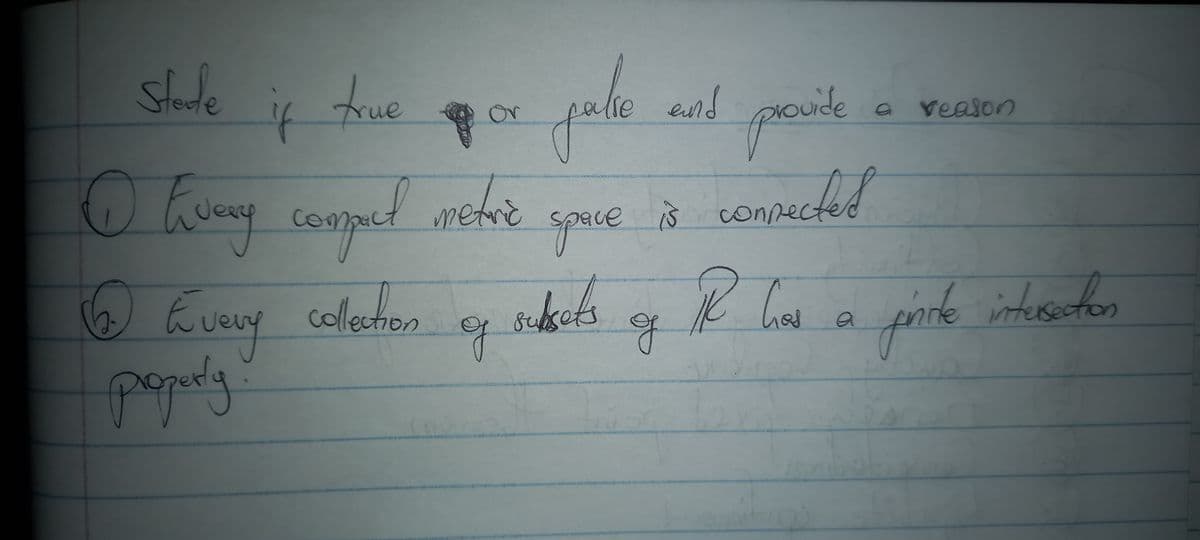 State if true or false and provide a reason
① Every compact metric space is connected
② Every collection of subsets of ℝ has a finite intersection
property.